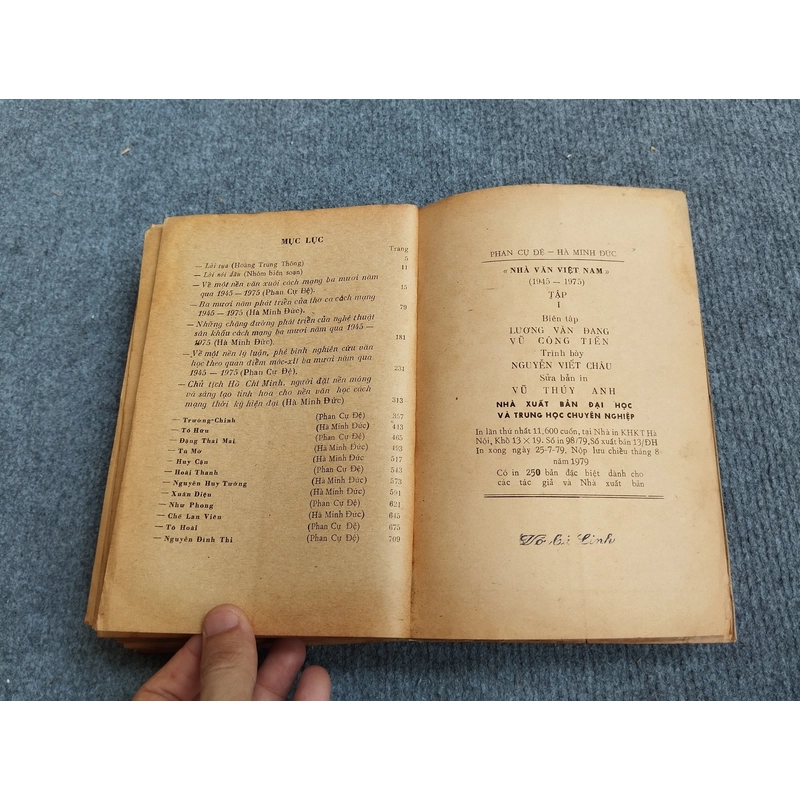 MỤC LỤC
Trang
— Lời tựa (Hoàng Trung Thông) 5
— Lời nói đầu (Nhóm biên soạn) 11
— Về một nền văn xuôi cách mạng ba mươi năm
qua 1945 — 1975 (Phan Cự Đệ). 15
— Ba mươi năm phát triển của thơ ca cách mạng
1945 — 1975 (Hà Minh Đức). 79
— Những chặng đường phát triển của nghệ thuật
sân khấu cách mạng ba mươi năm qua 1945 —
1975 (Hà Minh Đức) 181
— Về một nền lý luận, phê bình nghiên cứu văn
học theo quan điểm mác-xít ba mươi năm qua
1945 — 1975 (Phan Cự Đệ). 231
— Chủ tịch Hồ Chí Minh, người đặt nền móng
và sáng tạo tinh hoa cho nền văn học cách
mạng thời kỳ hiện đại (Hà Minh Đức) 313
— Trường-Chinh (Phan Cự Đệ) 357
— Tố Hữu (Hà Minh Đức) 413
— Đặng Thai Mai (Phan Cự Đệ) 465
— Tú Mỡ (Hà Minh Đức) 493
— Huy Cận (Hà Minh Đức) 517
— Hoài Thanh (Phan Cự Đệ) 543
— Nguyễn Huy Tưởng (Hà Minh Đức) 573
— Xuân Diệu (Hà Minh Đức) 591
— Như Phong (Phan Cự Đệ) 621
— Chế Lan Viên (Hà Minh Đức) 645
— Tô Hoài (Phan Cự Đệ) 675
— Nguyễn Đình Thi (Phan Cự Đệ) 709
PHAN CỰ ĐỆ — HÀ MINH ĐỨC
« NHÀ VĂN VIỆT NAM »
(1945 — 1975)
TẬP
I
Biên tập
LƯƠNG VĂN ĐANG
VŨ CÔNG TIẾN
Trình bày
NGUYỄN VIẾT CHÂU
Sửa bản in
VŨ THÚY ANH
NHÀ XUẤT BẢN ĐẠI HỌC
VÀ TRUNG HỌC CHUYÊN NGHIỆP
In lần thứ nhất 11,600 cuốn, tại Nhà in KHKT Hà
Nội, Khổ 13 × 19. Số in 98/79, Số xuất bản 13/ĐH
In xong ngày 25-7-79. Nộp lưu chiểu tháng 8
năm 1979
Có in 250 bản đặc biệt dành cho
các tác giả và Nhà xuất bản